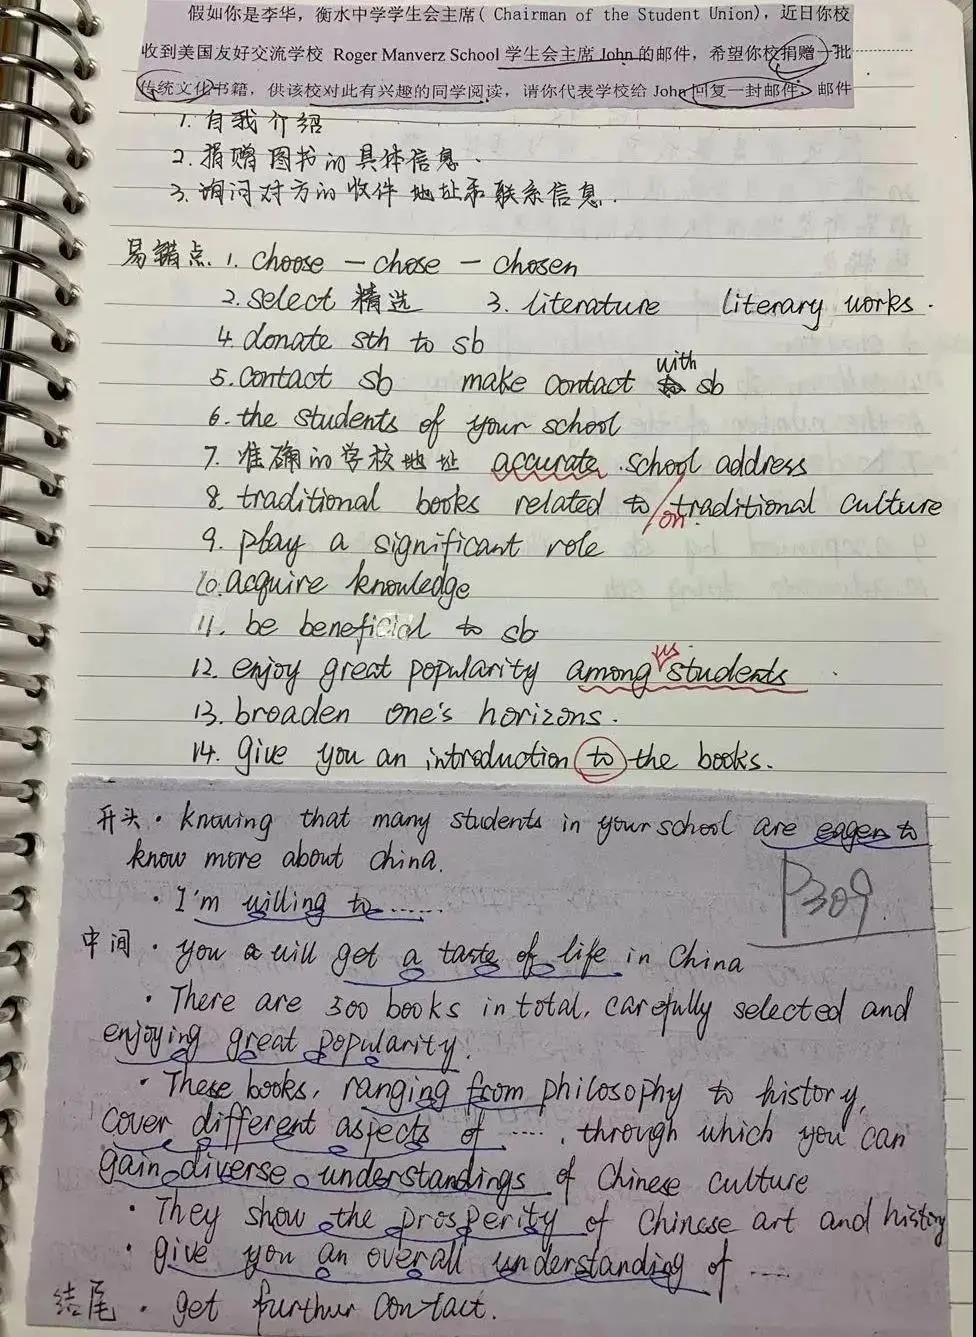 假如你是李华，衡水中学学生会主席( Chairman of the Student Union)，近日你校
收到美国友好交流学校 Roger Manverz School 学生会主席 John 的邮件，希望你校捐赠一批
传统文化书籍，供该校对此有兴趣的同学阅读，请你代表学校给 John 回复一封邮件，邮件
1. 自我介绍
2. 捐赠图书的具体信息.
3. 询问对方的收件地址和联系信息.
易错点 1. choose — chose — chosen
2. select 精选 3. literature literary works.
4. donate sth to sb
5. contact sb make contact with sb
6. the students of your school
7. 准确的学校地址 accurate school address
8. traditional books related to/on traditional culture
9. play a significant role
10. acquire knowledge
11. be beneficial to sb
12. enjoy great popularity among us students
13. broaden one's horizons.
14. give you an introduction to the books.
开头 · knowing that many students in your school are eager to
know more about china.
P309
· I'm willing to ......
中间 · you will get a taste of life in China
· There are 300 books in total, carefully selected and
enjoying great popularity.
· These books, ranging from philosophy to history,
cover different aspects of ...., through which you can
gain diverse understandings of Chinese culture
· They show the prosperity of Chinese art and history
· give you an overall understanding of .....
结尾 · get furthur contact.